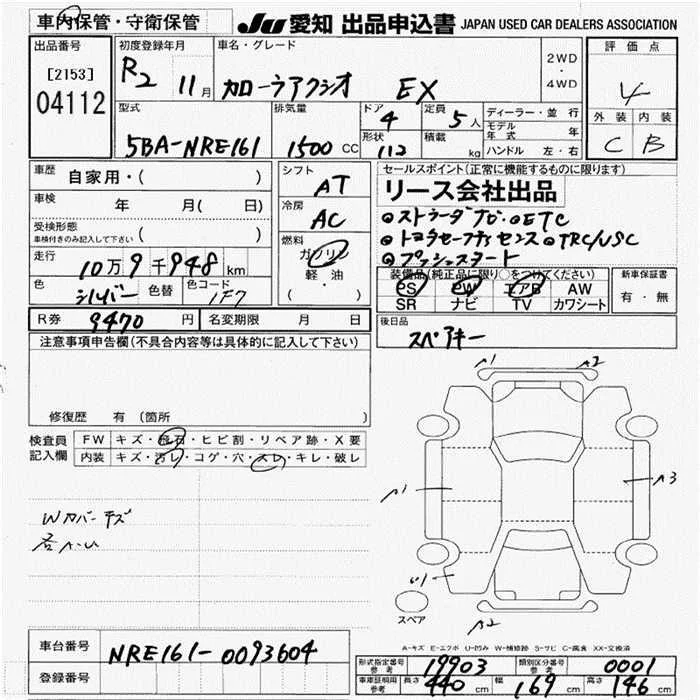 車内保管・守衛保管
JU 愛知 出品申込書 JAPAN USED CAR DEALERS ASSOCIATION
出品番号
[2153]
04112
初度登録年月
R2 11月
車名・グレード
カローラアクシオ EX
2WD
・
4WD
評価点
4
外装 内装
C B
型式
5BA-NRE161
排気量
1500 CC
ドア
4
形状
112
定員
5人
積載
kg
ディーラー・並行
モデル年式 年
ハンドル 左・右
車歴
自家用・( )
車検
年 月( 日)
受検形態
車検付きのみ記入して下さい ( )
走行
10万9千948km
色
シルバー
色替
色コード
1F7
シフト
AT
冷房
AC
燃料
ガソリン
軽油
( ・ )
セールスポイント(正常に機能するものに限ります)
リース会社出品
◎ストラーダナビ・◎ETC
◎トヨタセーフティセンス◎TRC/VSC
◎プッシュスタート
装備品(純正品に限り○をつけてください)
PS PW エアB AW
SR ナビ TV カワシート
新車保証書
有・無
R券 9470円
名変期限 月 日
後日品
スペアキー
注意事項申告欄(不具合内容等は具体的に記入して下さい)
修復歴 有(箇所 )
検査員
記入欄
FW キズ・飛石・ヒビ割・リペア跡・X要
内装 キズ・汚レ・コゲ・穴・スレ・キレ・破レ
Wカバーキズ
各A・U
A1 A2
A1 A3
U1
スペア
A2
A-キズ E-エクボ U-凹み W-補修跡 S-サビ C-腐食 XX-交換済
車台番号
NRE161-0093604
登録番号
形式指定番号
参考
19903
類別区分番号
参考
0001
車庫証明用
参考
長さ 440cm 幅 169cm 高さ 146cm